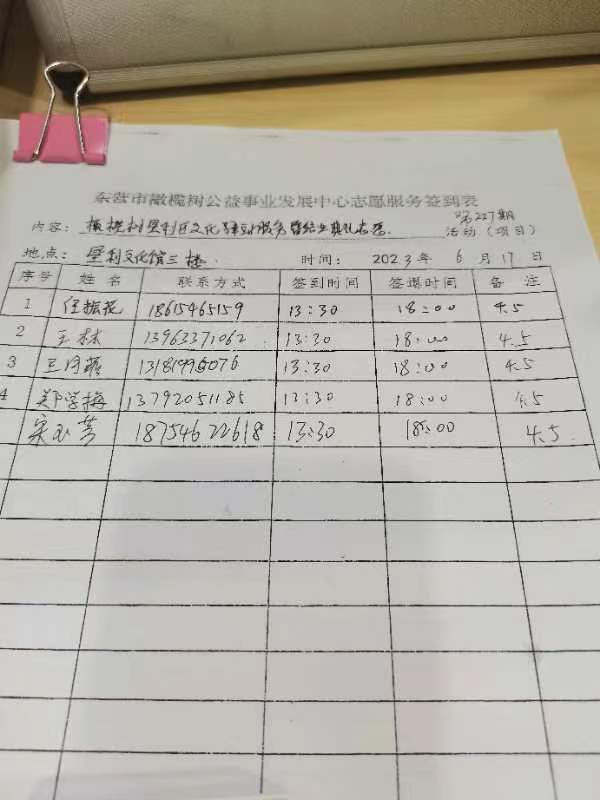 东营市橄榄树公益事业发展中心志愿服务签到表
第227期
内容: 橄榄树垦利区文化 服务 活动(项目)
地点: 垦利文化馆三楼 时间: 2023年 6月 17日
序号 姓名 联系方式 签到时间 签退时间 备注
1 任振花 18615465159 13:30 18:00 4.5
2 王林 13963371062 13:30 18:00 4.5
3 王月 13181995076 13:30 18:00 4.5
4 郑学梅 13792051185 13:30 18:00 4.5
宋玉芳 18754622618 13:30 18:00 4.5